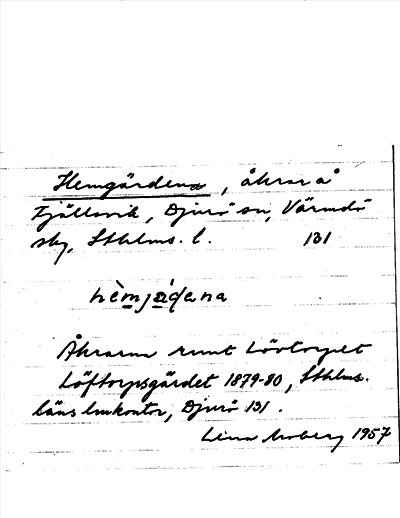 Hemgärdena, åkrar å
Fjällsvik, Djurö sn, Värmdö
skg, Sthlms. l. 131
hèmjǻdana
Åkrarna runt Lövtorpet
Löftorpsgärdet 1879-80, Sthlms.
läns lmkontor, Djurö 131.
Lena Moberg 1957